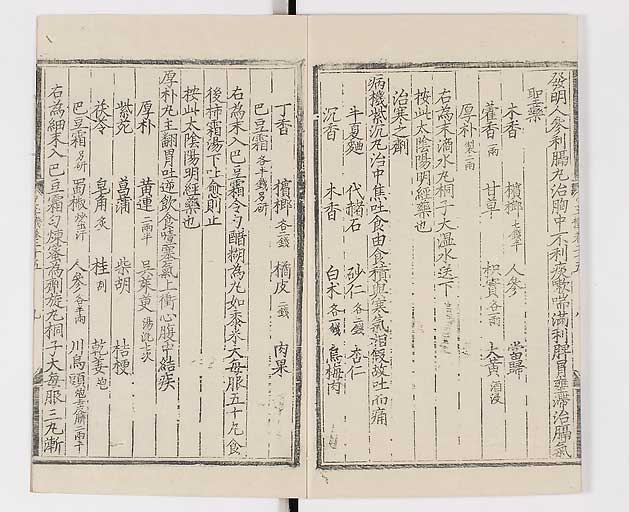 發明人參利膈丸治胸中不利痰嗽喘滿利脾胃壅滯治膈氣
聖藥
木香 檳榔七錢半 人參 當歸
藿香一兩 甘草 枳實各一兩 大黃酒浸
厚朴製二兩
右為末滴水丸桐子大溫水送下
按此太陰陽明經藥也
治寒之劑
病機紫沉丸治中焦吐食由食積與寒氣相假故吐而痛
半夏麯 代赭石 砂仁各三錢 杏仁
沉香 木香 白朮各一錢 烏梅肉
丁香 檳榔各二錢 橘皮三錢 肉果
巴豆霜各半錢另研
右為末入巴豆霜令勻醋糊為丸如黍米大每服五十丸食
後柿霜湯下吐愈則止
按此太陰陽明經藥也
厚朴丸主翻胃吐逆飲食噎塞氣上衝心腹中結疾
厚朴 黃連二兩半 吳茱萸湯洗七次
紫菀 菖蒲 柴胡 桔梗
茯苓 皂角炙 桂刮 乾姜炮
巴豆霜另研 蜀椒炒出汗 人參各半兩 川烏頭炮去皮臍二兩半
右為細末入巴豆霜勻煉蜜為劑旋丸桐子大每服三丸漸